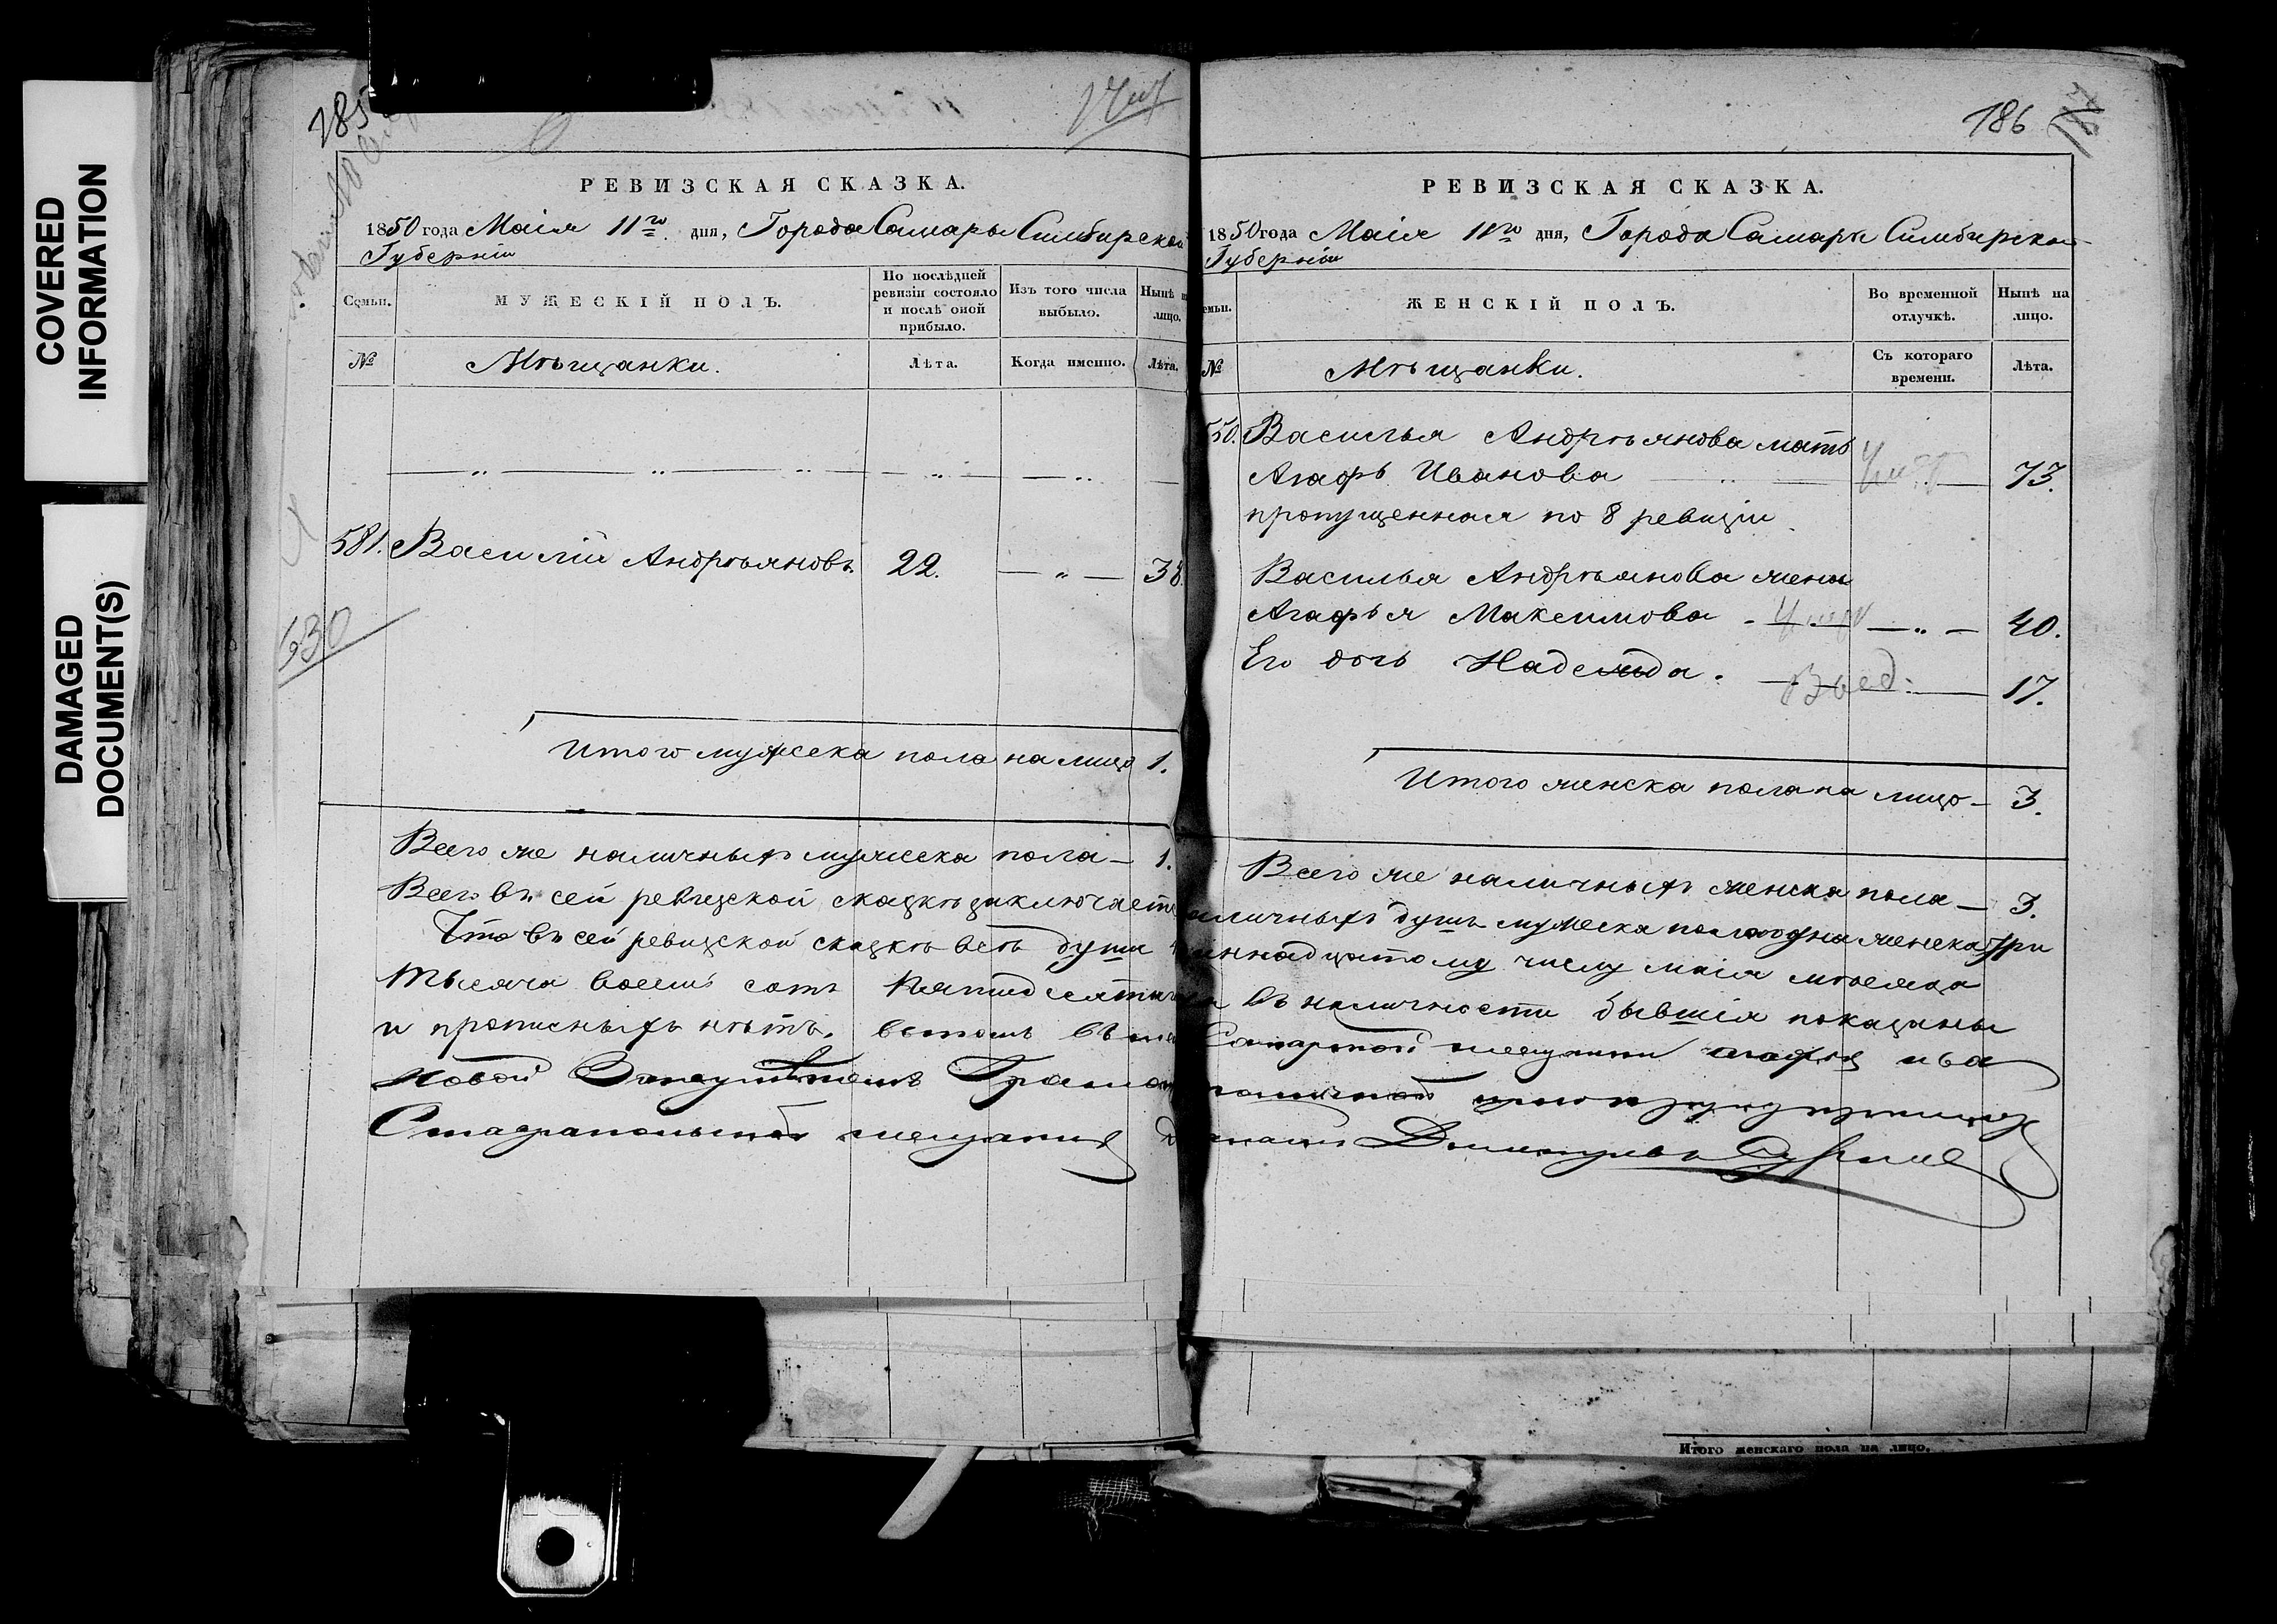 COVERED
INFORMATION
DAMAGED
DOCUMENT(S)
185
РЕВИЗСКАЯ СКАЗКА.
1850 года Маія 11го дня, Города Самары Симбирской
Губерніи
Семьи.
МУЖЕСКІЙ ПОЛЪ.
По послѣдней ревизіи состояло и послѣ оной прибыло.
Изъ того числа выбыло.
Нынѣ на лицо.
№
Мѣщанки.
Лѣта.
Когда именно.
Лѣта.
581. Василій Андрѣяновъ. 22. — „ — 38.
530
Итого мужеска пола на лицо 1.
Всего же наличныхъ мужеска пола — 1.
Всего въ сей ревизской сказкѣ заключается
Что въ сей ревизской сказкѣ всѣ души
тысяча восемь сотъ пятидесятаго
и прописныхъ нѣтъ. въ томъ
Ставрапольской мещанинъ
186
РЕВИЗСКАЯ СКАЗКА.
1850 года Маія 11го дня, Города Самары Симбирской
Губерніи
емьи.
ЖЕНСКІЙ ПОЛЪ.
Во временной отлучкѣ.
Нынѣ на лицо.
№
Мѣщанки.
Съ котораго времени.
Лѣта.
550. Василья Андрѣянова мать
Агафь Иванова 73.
пропущенная по 8 ревизіи
Василья Андрѣянова жена
Агафья Максимова - — „ — 40.
Его дочь Надежда. 17.
Итого женска пола на лицо — 3.
Всего же наличныхъ женска пола — 3.
аличныхъ душъ мужеска пола одна женска три
иннадцатому числу маія мѣсяца
въ наличности бывшія показаны
Самарской мещанки агафья ива
Итого женскаго пола на лицо.